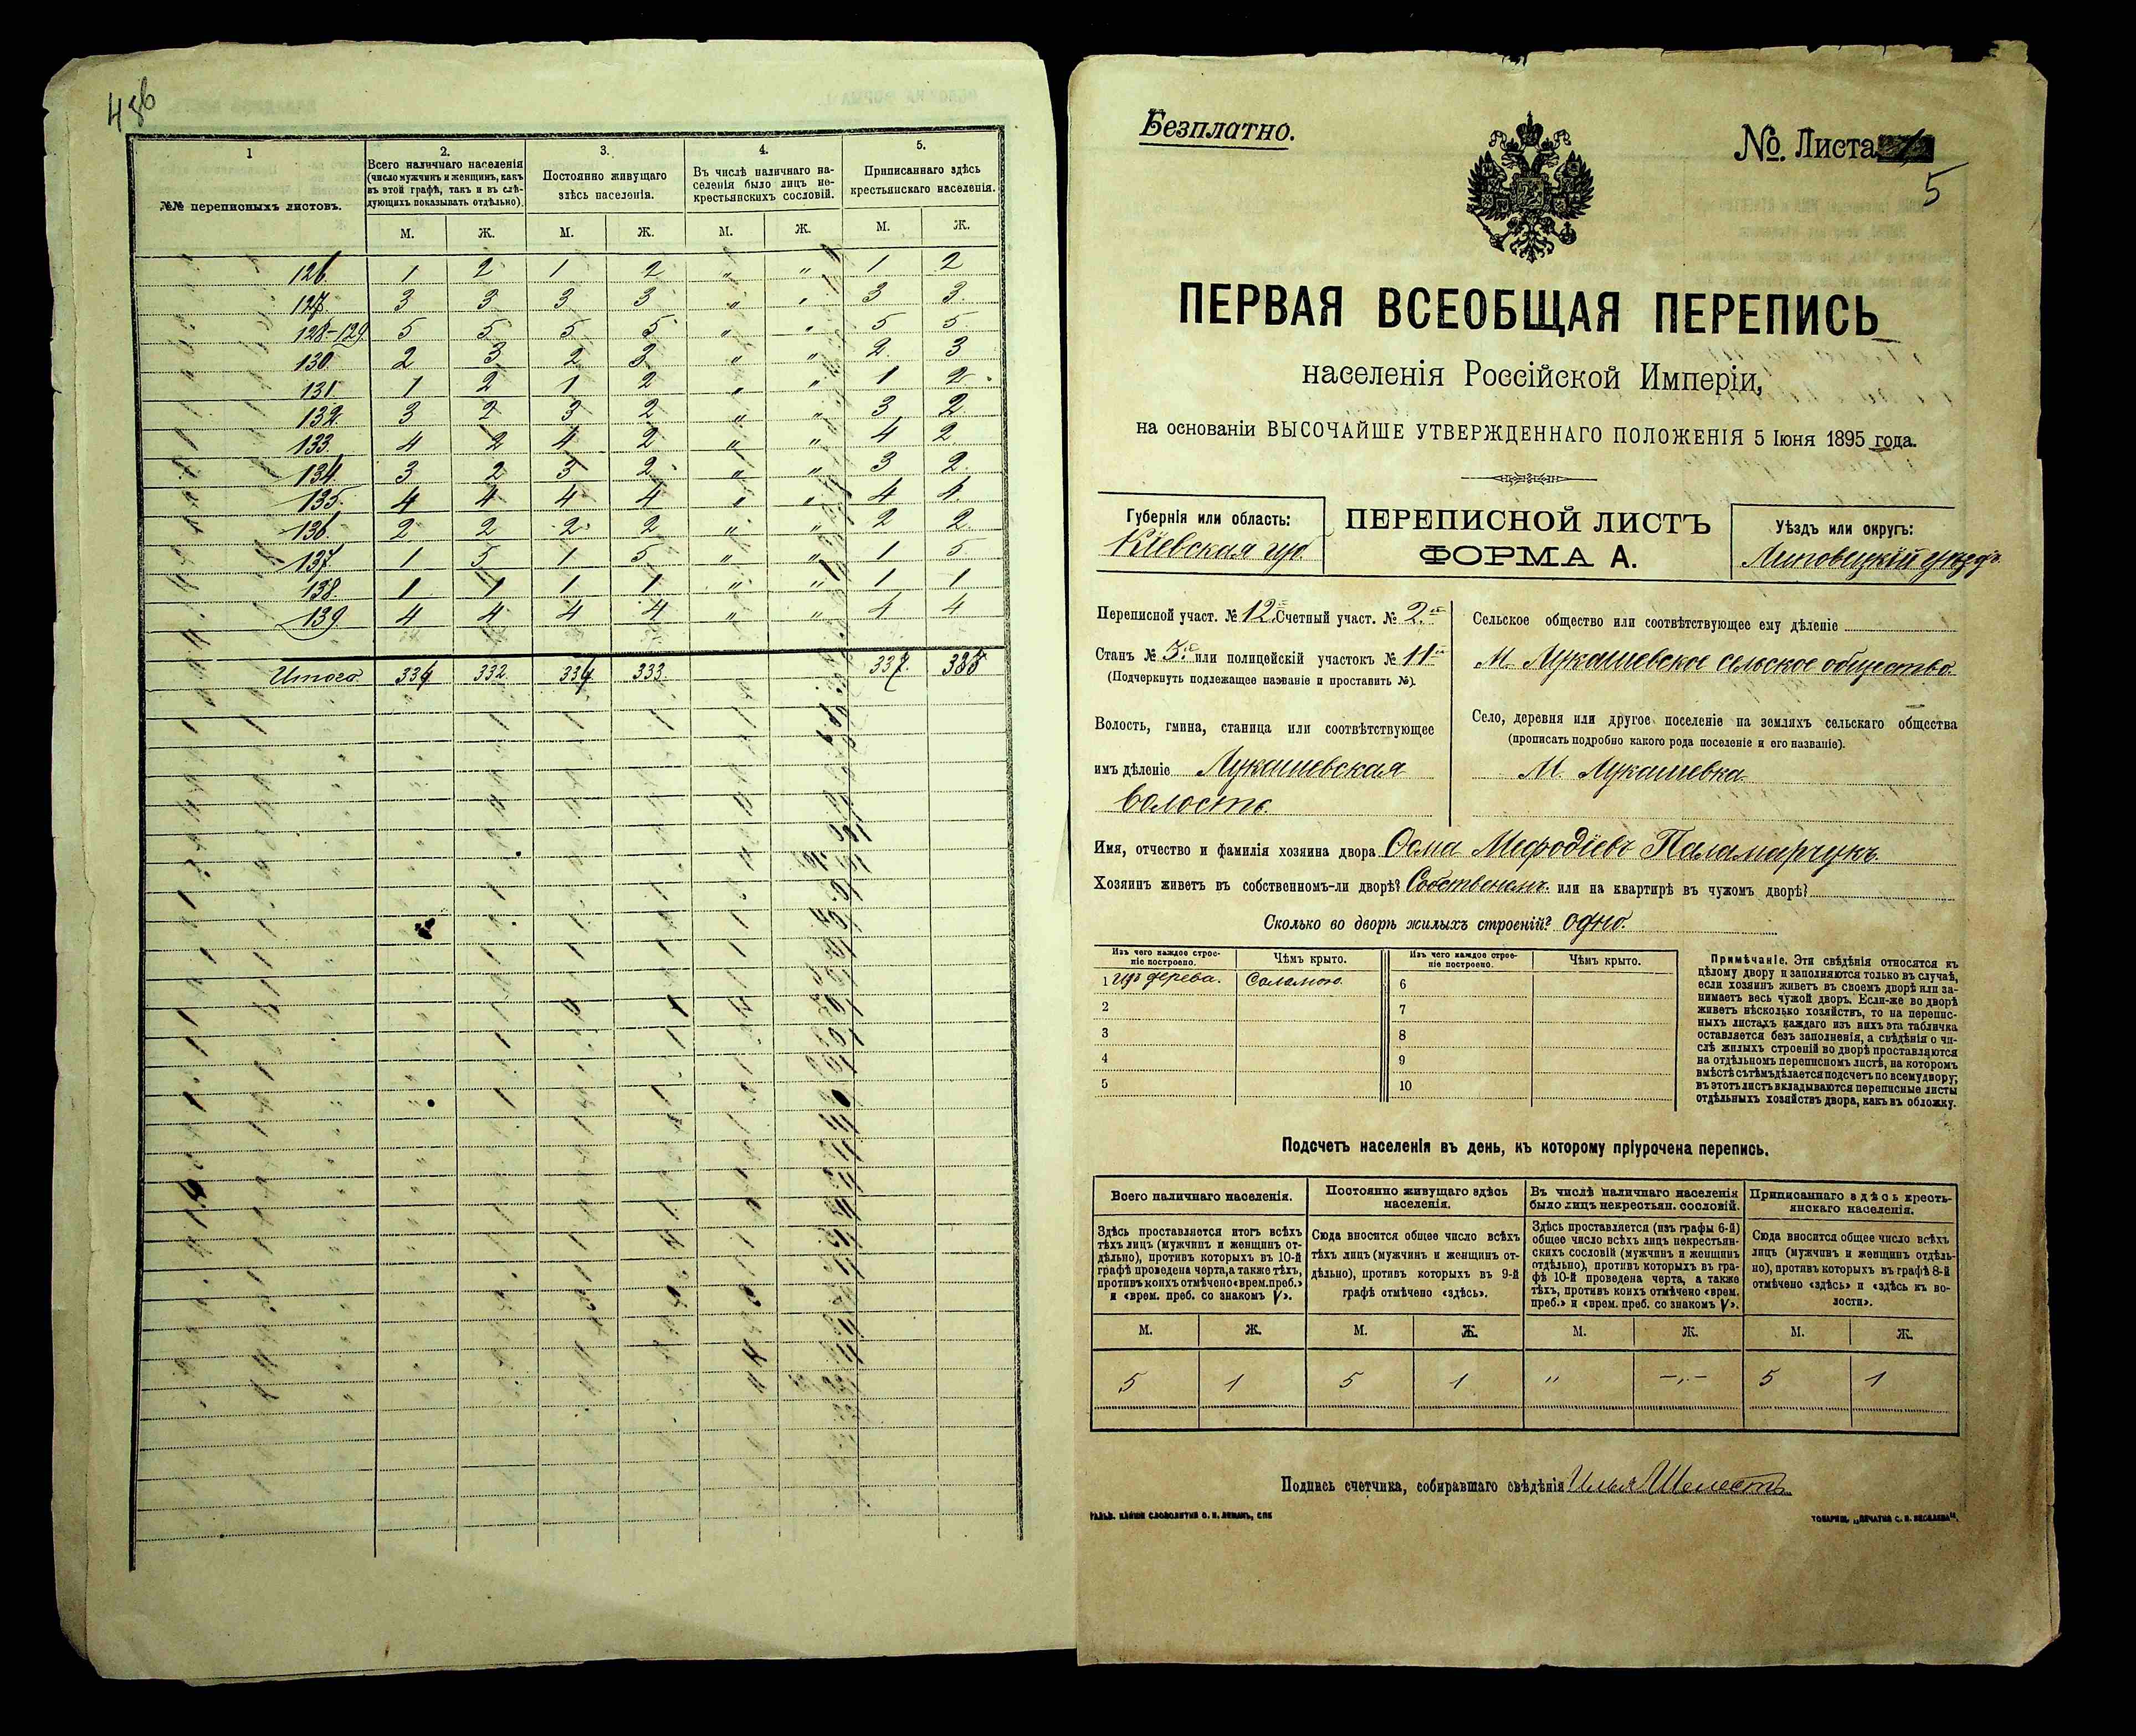 4 об
1
2.
3.
4.
5.
№№ переписныхъ листовъ.
Всего наличнаго населенія
(число мужчинъ и женщинъ, какъ
въ этой графѣ, такъ и въ слѣ-
дующихъ показывать отдѣльно).
Постоянно живущаго
здѣсь населенія.
Въ числѣ наличнаго на-
селенія было лицъ не-
крестьянскихъ сословій.
Приписаннаго здѣсь
крестьянскаго населенія.
М. Ж. М. Ж. М. Ж. М. Ж.
126. 1 2 1 2 „ „ 1 2
127. 3 3 3 3 „ „ 3 3.
128-129. 5 5 5 5 „ „ 5 5.
130. 2 3 2 3 „ „ 2. 3
131. 1 2 1 2 „ „ 1 2.
132. 3 2 3 2 „ „ 3 2.
133. 4 2 4 2 „ „ 4 2.
134. 3 2 3 2 „ „ 3 2.
135. 4 4 4 4 „ „ 4 4.
136. 2 2 2 2 „ „ 2 2.
137. 1 5 1 5 „ „ 1 5.
138. 1 1 1 1 „ „ 1 1
139. 4 4 4 4 „ „ 4 4
Итого 334 332 334 333 337.
Безплатно.
№. Листа
5
ПЕРВАЯ ВСЕОБЩАЯ ПЕРЕПИСЬ
населенія Россійской Имперіи,
на основаніи ВЫСОЧАЙШЕ УТВЕРЖДЕННАГО ПОЛОЖЕНІЯ 5 Іюня 1895 года.
Губернія или область:
Кіевская гу.
ПЕРЕПИСНОЙ ЛИСТЪ
ФОРМА А.
Уѣздъ или округъ:
Липовецкій уѣздъ.
Переписной участ. № 12 Счетный участ. № 2.
Станъ № 3. или полицейскій участокъ № 11
(Подчеркнуть подлежащее названіе и проставить №).
Волость, гмина, станица или соотвѣтствующее
имъ дѣленіе Лукашевская
волость.
Сельское общество или соотвѣтствующее ему дѣленіе
М. Лукашевское сельское общество.
Село, деревня или другое поселеніе на земляхъ сельскаго общества
(прописать подробно какого рода поселеніе и его названіе).
М. Лукашевка.
Имя, отчество и фамилія хозяина двора Ѳома Мефодіевъ Паламарчукъ.
Хозяинъ живетъ въ собственномъ-ли дворѣ? Собственомъ. или на квартирѣ въ чужомъ дворѣ?
Сколько во дворѣ жилыхъ строеній? одно.
Изъ чего каждое строе-
ніе построено.
Чѣмъ крыто.
Изъ чего каждое строе-
ніе построено.
Чѣмъ крыто.
1 изъ дерева. Соломою. 6
2 7
3 8
4 9
5 10
Примѣчаніе. Эти свѣдѣнія относятся къ
цѣлому двору и заполняются только въ случаѣ,
если хозяинъ живетъ въ своемъ дворѣ или за-
нимаетъ весь чужой дворъ. Если-же во дворѣ
живетъ нѣсколько хозяйствъ, то на перепис-
ныхъ листахъ каждаго изъ нихъ эта табличка
оставляется безъ заполненія, а свѣдѣнія о чи-
слѣ жилыхъ строеній во дворѣ проставляются
на отдѣльномъ переписномъ листѣ, на которомъ
вмѣстѣ съ тѣмъ дѣлается подсчетъ по всему двору;
въ этотъ листъ вкладываются переписные листы
отдѣльныхъ хозяйствъ двора, какъ въ обложку.
Подсчетъ населенія въ день, къ которому пріурочена перепись.
Всего наличнаго населенія.
Постоянно живущаго здѣсь
населенія.
Въ числѣ наличнаго населенія
было лицъ некрестьян. сословій.
Приписаннаго здѣсь кресть-
янскаго населенія.
Здѣсь проставляется итогъ всѣхъ
тѣхъ лицъ (мужчинъ и женщинъ от-
дѣльно), противъ которыхъ въ 10-й
графѣ проведена черта, а также тѣхъ,
противъ коихъ отмѣчено «врем. преб.»
и «врем. преб. со знакомъ V».
Сюда вносится общее число всѣхъ
тѣхъ лицъ (мужчинъ и женщинъ от-
дѣльно), противъ которыхъ въ 9-й
графѣ отмѣчено «здѣсь».
Здѣсь проставляется (изъ графы 6-й)
общее число всѣхъ лицъ некрестьян-
скихъ сословій (мужчинъ и женщинъ
отдѣльно), противъ которыхъ въ гра-
фѣ 10-й проведена черта, а также
тѣхъ, противъ коихъ отмѣчено «врем.
преб.» и «врем. преб. со знакомъ V».
Сюда вносится общее число всѣхъ
лицъ (мужчинъ и женщинъ отдѣль-
но), противъ которыхъ въ графѣ 8-й
отмѣчено «здѣсь» и «здѣсь къ во-
лости».
М. Ж. М. Ж. М. Ж. М. Ж.
5 1 5 1 „ -„- 5 1
Подпись счетчика, собиравшаго свѣдѣнія Илья Шелестъ
ГАЛЬВ. КЛИШЕ СЛОВОЛИТНИ О. И. ЛЕМАНЪ, СПБ
ТОВАРИЩ. „ПЕЧАТНЯ С. П. ЯКОВЛЕВА“.